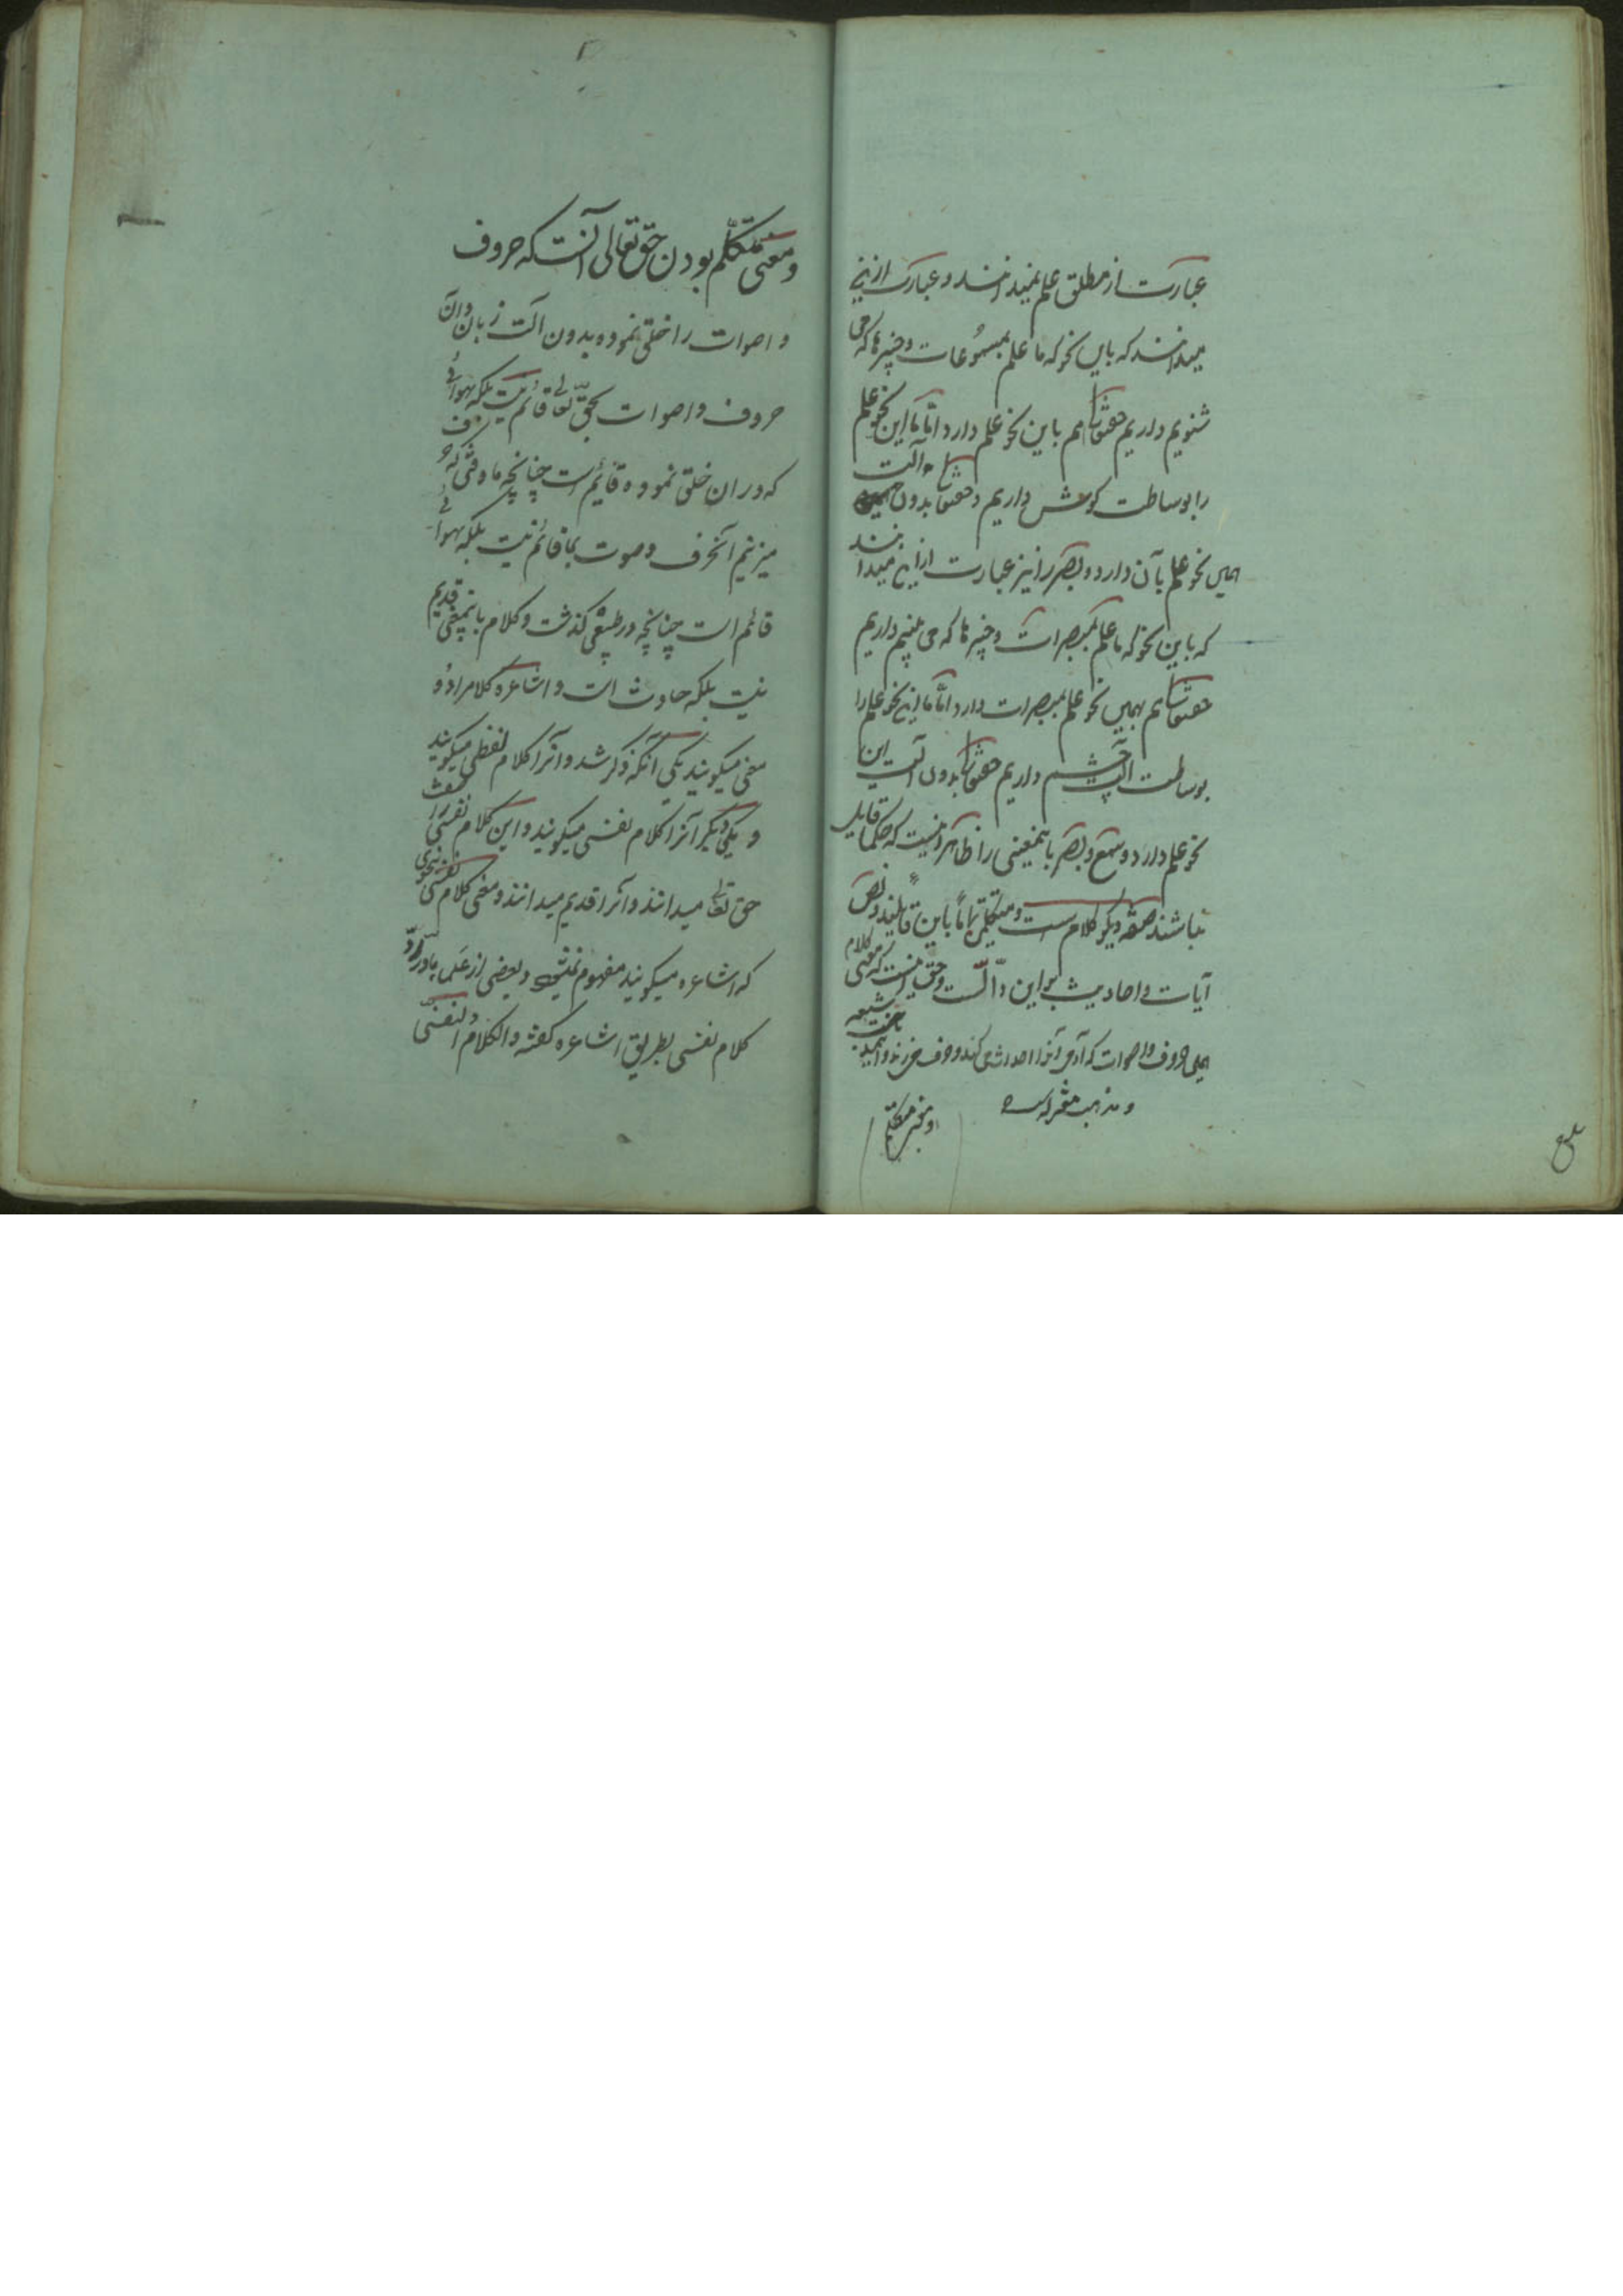 عبارت از مطلق علم نمیدانند و عبارت ازین
میدانند که باین نحو که ما علم بمسموعات و چیزها که می
شنویم داریم حقتعالی هم باین نحو علم دارد اما ما این نحو علم
را بوساطت گوش داریم و حقتعالی بدون آلت
همین نحو علم بآن دارد و بصر را نیز عبارت ازین میدانند
که باین نحو که ما علم بمبصرات و چیزها که می بینیم داریم
حقتعالی هم بهمین نحو علم بمبصرات دارد اما ما این نحو علم را
بوساطت آلت چشم داریم حقتعالی بدون آلت این
نحو علم دارد و سمع و بصر باینمعنی را ظاهر اینست که حکما قایل
نباشند صفة دیگر کلام است و متکلمین تماما باین قایلند و نص
آیات و احادیث براین دالست و حق اینست که معنی کلام
همین حروف و اصوات که آدمی آنرا احداث می کند و حرف می زند و
و مذهب معتزله است
و معنی متکلم
و معنی متکلم بودن حق تعالی آنست که حروف
و اصوات را خلق نموده بدون آلت زبان و آن
حروف و اصوات بحق تعالی قائم نیست بلکه بهوائی
که در ان خلق نموده قائیم است چنانچه ما وقتی که حرف
میزنیم آنحرف و صوت بما قائم نیست بلکه بهوائی
قائم است چنانچه در طبیعی گذشت و کلام باینمعنی قدیم
نیست بلکه حادث است و اشاعره کلام را دو
معنی میگویند یکی آنکه ذکر شد و آنرا کلام لفظی میگویند
و یکی دیگر آنرا کلام نفسی میگویند و این کلام نفسی را صفت
حق تعالی میدانند و آنرا قدیم میدانند و معنی کلام نفسی بنحوی
که اشاعره میگویند مفهوم نمیشود و بعضی از علما در رد
کلام نفسی بطریق اشاعره گفته و الکلام النفسی